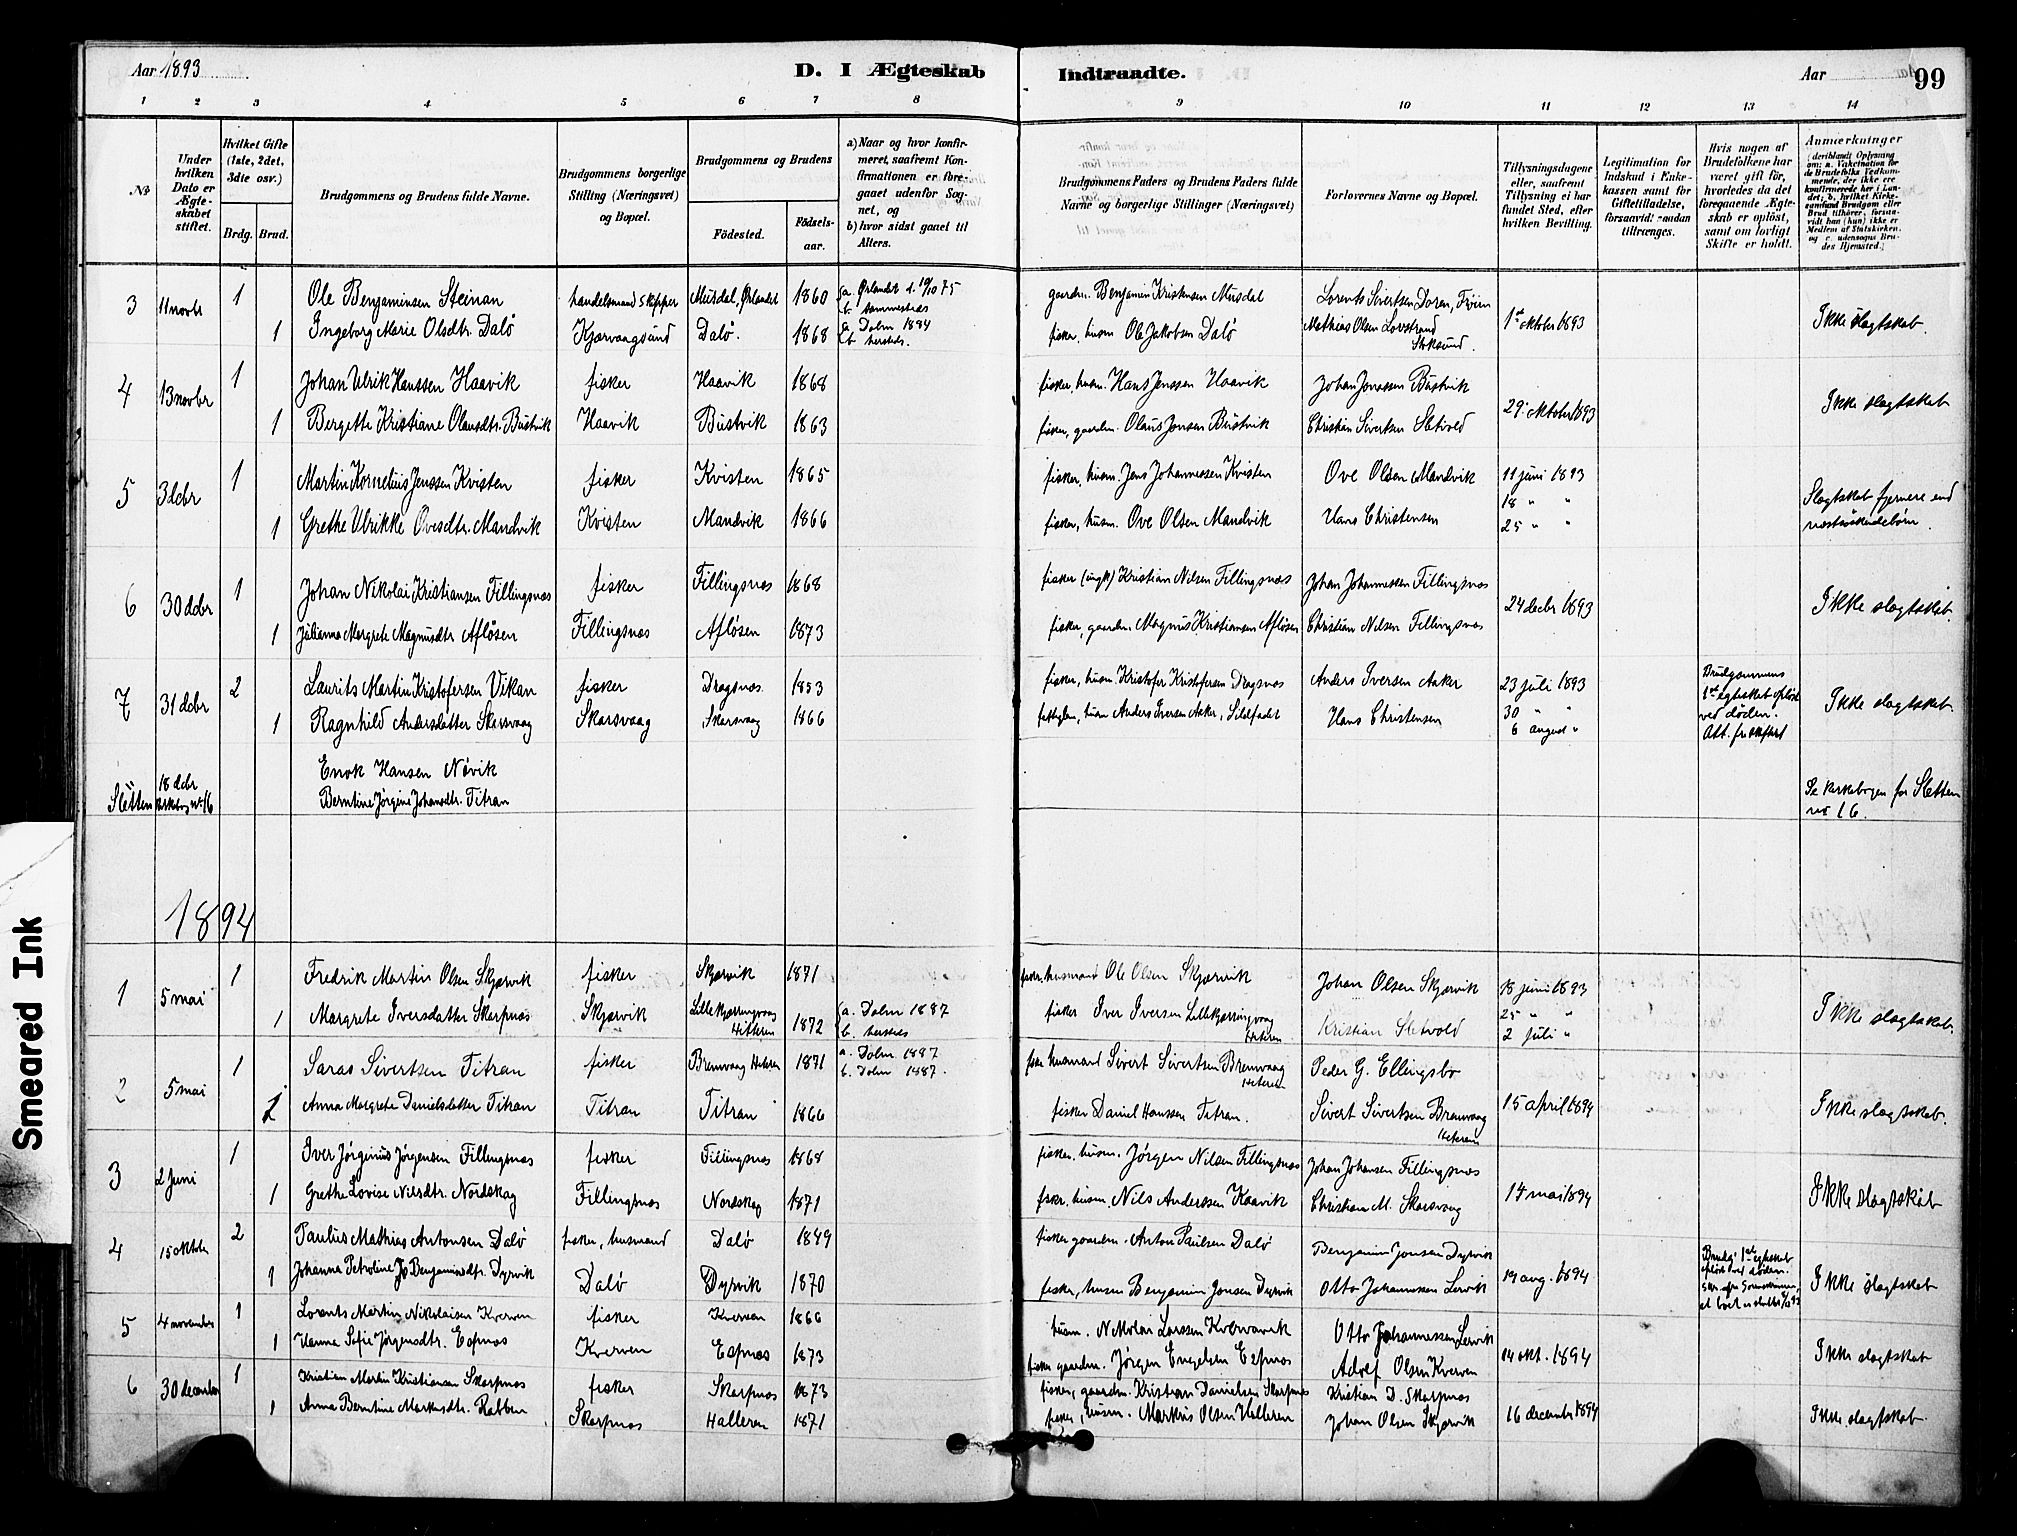 Aar 1893
D. I Ægteskab Indtraadte.
Aar 99
1 2 3 4 5 6 7 8 9 10 11 12 13 14
No
Under hvilken Dato er Ægteskabet stiftet.
Hvilket Gifte (1ste, 2det, 3die osv.)
Brdg. Brud.
Brudgommens og Brudens fulde Navne.
Brudgommens borgerlige Stilling (Næringsvei) og Bopæl.
Brudgommens og Brudens
Fødested. Fødselsaar.
a) Naar og hvor konfirmeret, saafremt Konfirmationen er foregaaet udenfor Sognet, og
b) hvor sidst gaaet til Alters.
Brudgommens Faders og Brudens Faders fulde Navne og borgerlige Stillinger (Næringsvei)
Forlovernes Navne og Bopæl.
Tillysningsdagene eller, saafremt Tillysning ei har fundet Sted, efter hvilken Bevilling.
Legitimation for Indskud i Enkekassen samt for Giftetilladelse, forsaavidt saadan tiltrænges.
Hvis nogen af Brudefolkene har været gift før, hvorledes da det foregaaende Ægteskab er opløst, samt om lovligt Skifte er holdt.
Anmerkninger (deriblandt Oplysning om: a. Vakcination for de Brudefolks Vedkommende, der ikke ere konfirmerede her i Landet; b. hvilket Kirkesamfund Brudgom eller Brud tilhører, forsaavidt han (hun) ikke er Medlem af Statskirken, og c. udensogns Brudes Hjemsted.)
3 11 novbr 1 Ole Benjaminsen Steinan handelsmand Skipper Musdal, Ørlandet 1860 a. Ørlandet 1. 10/10 75 gaardm. Benjamin Kristensen Musdal Lorents Sivertsen Doren, Frøien 1ste oktober 1893 Ikke slægtskab.
b. sammesteds
1 Ingeborg Marie Olsdtr. Dalø Kjærvaagsund Dalø. 1868 a. Dolm 1884 fisker, husm. Ole Jakobsen Dalø Mathias Olsen Lovstrand
b. hersteds. Stoksund.
4 13 novbr 1 Johan Ulrik Hanssen Haavik fisker Haavik 1868 fisker, husm. Hans Jenssen Haavik Johan Jonassen Bustvik 29. oktober 1893 Ikke slægtskab
1 Bergette Kristiane Olausdtr. Bustvik Haavik Bustvik 1863 fisker, gaardm. Olaus Jonsen Bustvik Christian Sivertsen Sletvold
5 3 dcbr 1 Martin Kornelius Jenssen Kvisten fisker Kvisten 1865 fisker, husm. Jens Johannessen Kvisten Ove Olsen Mandvik 11 juni 1893 Slægtskab fjernere end
18 " "
1 Grethe Ulrikke Ovesdtr. Mandvik Kvisten Mandvik 1866 fisker, husm. Ove Olsen Mandvik Hans Christensen 25 " " næstsøskendebørn.
6 30 dcbr 1 Johan Nikolai Kristiansen Fillingsnæs fisker Fillingsnæs 1868 fisker (ungk) Kristian Nilsen Fillingsnæs Johan Johannessen Fillingsnæs 24 decbr 1893 Ikke slægtskab.
1 Julianna Margrete Magnusdtr Afløsen Fillingsnæs Afløsen 1873 fisker, gaardm. Magnus Kristiansen Afløsen Christian Nilsen Fillingsnæs
7 31 dcbr 2 Laurits Martin Kristofersen Vikan fisker Dragsnæs 1853 fisker, husm. Kristofer Kristofersen Dragsnæs Anders Iversen Aaker 23 juli 1893 Brudgommens 1ste egteskab opløst ved døden. Ikke slægtskab
30 " "
1 Ragnhild Andersdatter Skarsvaag Skarsvaag Skarsvaag 1866 husm Anders Iversen Aaker, Sildfadet Hans Christensen 6 august " Att. fr. skifteret
Sletten 18 dcbr Enok Hansen Nøvik
No 16 Berntine Jørgine Johansdtr. Titran Se kirkebogen for Sletten no 16.
1894
1 5 mai 1 Fredrik Martin Olsen Skjærvik fisker Skjærvik 1871 fisker, husmand Ole Olsen Skjærvik Johan Olsen Skjærvik 18 juni 1893 Ikke slægtskab.
25 " "
1 Margrete Iversdatter Skarpnæs Skjærvik Lillekjærringvaag Hitteren 1872 a. Dolm 1887 b. hersteds fisker Iver Iversen Lillekjærringvaag Hiteren Kristian Sletvold 2 juli "
2 5 mai 1 Saras Sivertsen Titran fisker Bremvaag Hiteren 1871 a. Dolm 1887 b. Dolm 1887. fisk. husmand Sivert Sivertsen Bremvaag Hiteren Peder G. Ellingsbo 15 april 1894 Ikke slægtskab.
1 Anna Margrete Danielsdatter Titran Titran Titran 1866 fisker Daniel Hanssen Titran. Sivert Sivertsen Bremvaag Hiteren
3 2 Juni 1 Iver Jørginius Jørgensen Fillingsnæs fisker Fillingsnæs 1868 fisker, husm. Jørgen Nilsen Fillingsnæs Johan Johansen Fillingsnæs 14 mai 1894 Ikke slægtskab
1 Grethe Lovise Nilsdtr. Nordskag Fillingsnæs Nordskag 1871 fisker, husm. Nils Anderssen Haavik Christian M. Skarsvaag
4 15 oktober 2 Paulus Mathias Antonsen Dalø fisker, husmand Dalø 1849 fisker gaardm. Anton Paulsen Dalø Benjamin Jonsen Dyrvik 19 aug. 1894 Brudg. 1ste egteskab opløst ved døden. Ikke slægtskab
1 Johanna Petroline Benjaminsdtr. Dyrvik Dalø Dyrvik 1870 fisker, husm Benjamin Jonsen Dyrvik Otto Johannessen Lervik
5 4 november 1 Lorents Martin Nikolaisen Kverven fisker Kverven 1866 husm. Nikolai Larssen Kvervavik Otto Johannessen Lervik 14 okt. 1894 Ikke slægtskab
1 Hanna Sofie Jørgensdtr. Espnæs Kverven Espnæs 1873 fisker gaardm. Jørgen Engelsen Espnæs Adolf Olsen Kverven
6 30 december 1 Kristian Martin Kristiansen Skarpnæs fisker Skarpnæs 1873 fisker, gaardm. Kristian Danielsen Skarpnæs Kristian D. Skarpnæs 16 december 1894 Ikke slægtskab
1 Anna Berntine Markusdtr. Rabben Skarpnæs Halleren 1871 fisker, husm. Markus Olsen Helleren Johan Olsen Skjærvik
Smeared Ink